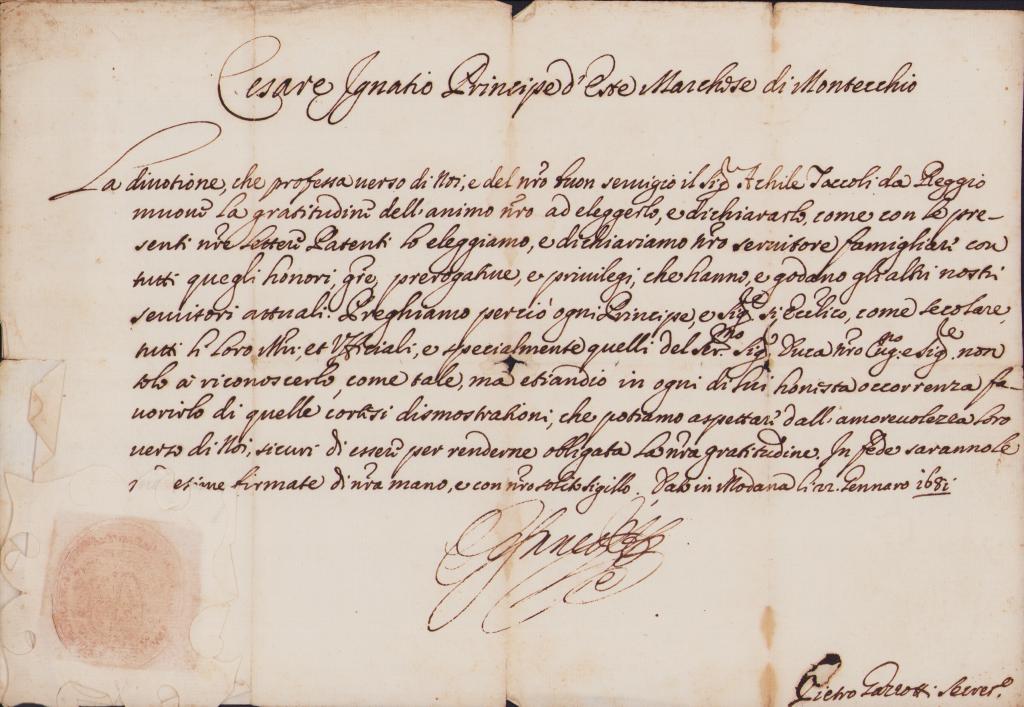 Cesare Ignatio Principe d'Este Marchese di Montecchio
La divotione, che professa verso di Noi, e del nr̃o buon servigio il Sig.r Achile Taccoli da Reggio
muove la gratitudine dell'animo nr̃o ad eleggerlo, e dichiararlo, come con le pre-
senti nr̃e Lettere Patenti lo eleggiamo, e dichiariamo nr̃o servitore famigliare con
tutti quegli honori, gr̃e, prerogative, e privilegi, che hanno, e godano gli altri nostri
servitori attuali. Preghiamo perciò ogni Principe, e Sig.re sì Ecclico, come secolare,
tutti li Loro Mri, et Uffiziali, e specialmente quelli del Ser.mo Sig.r Duca nr̃o Cug.no e Sig.re, non
solo à riconoscerlo, come tale, ma etiandio in ogni di lui honesta occorrenza fa-
vorirlo di quelle cortesi dismostrationi, che potiamo aspettare dall'amorevolezza Loro
verso di Noi, sicuri di essere per renderne obligata la nr̃a gratitudine. In fede sarannole
firmate di nr̃a mano, e con nr̃o solito sigillo. Dato in Modana li 22. Gennaro 1681
Pietro Gazzotti Secret.o